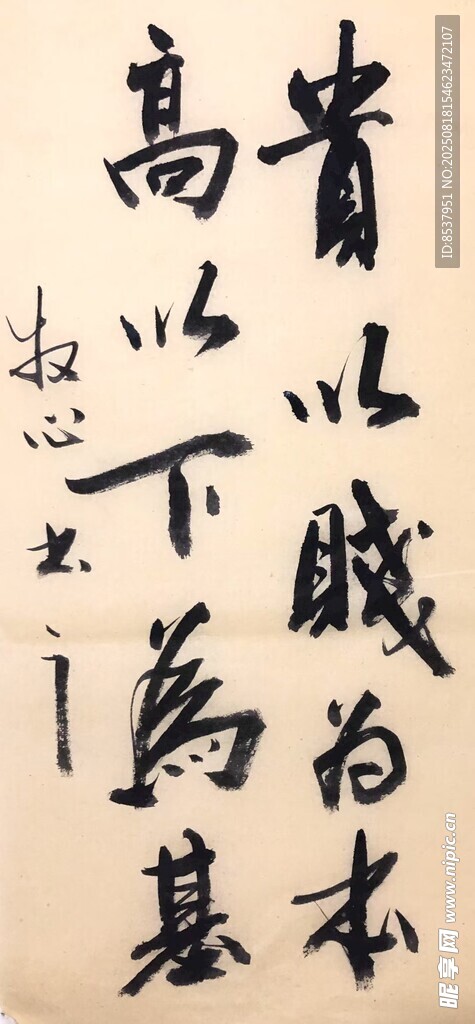 貴以賤为本
高以下為基
牧心书
ID:8537951 NO:20250818154623472107
昵享网 www.nipic.cn